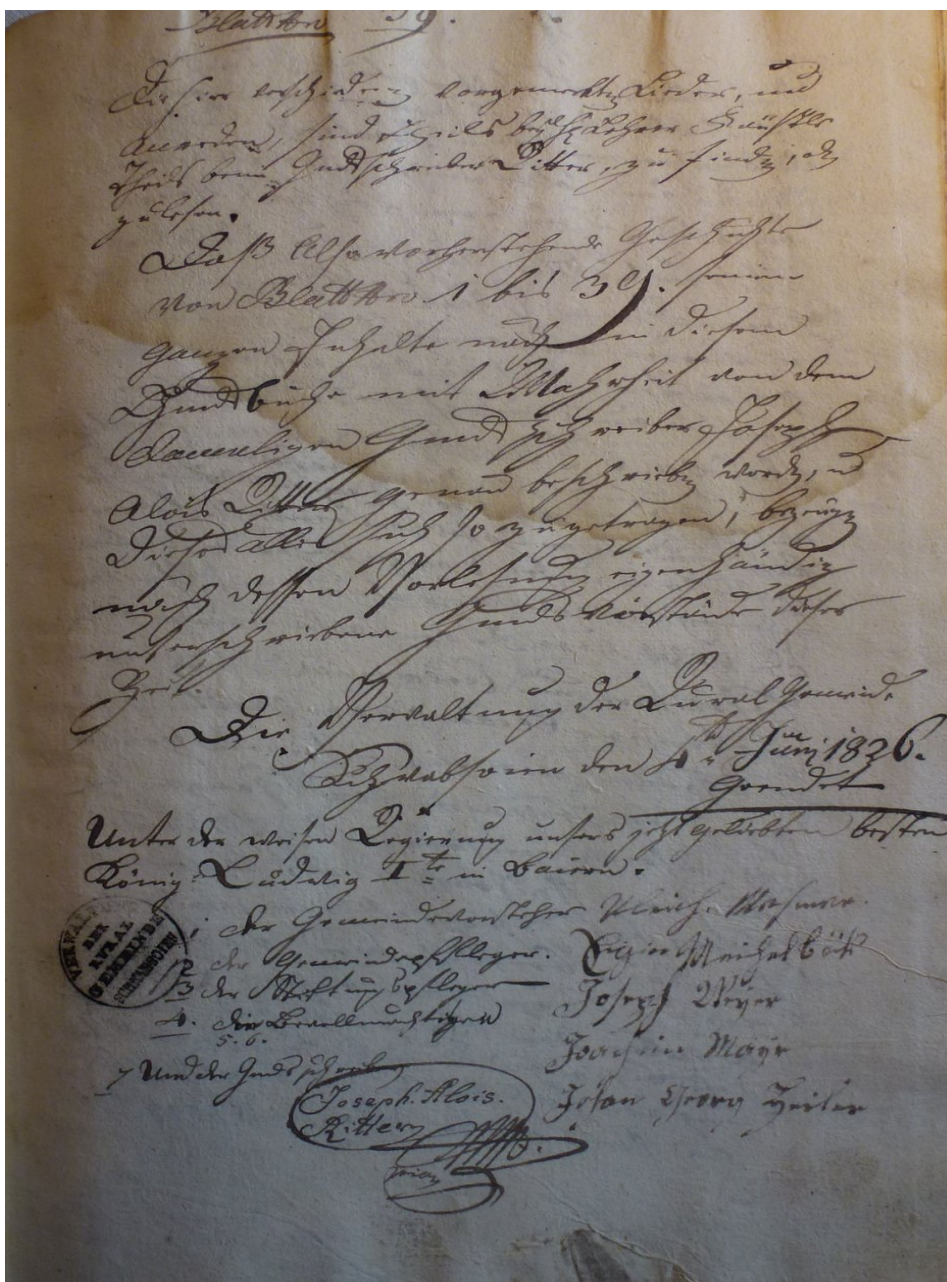 Blatt Nro 39.
Die hier verschiedenen vorgemerkten Lieder, und
Anreden, sind theils bey H. Lehrer
theils beim Gmdsschreiber Ritter, zu finden, od
zulesen.
Daß also vorherstehende Geschichte
von Blatt Nro 1 bis 39. seinem
ganzen Inhalte nach in diesem
Gmdsbuche mit Wahrheit von dem
damaligen Gmdsschreiber Joseph
Alois Ritter genau beschrieben worden, u
dieses alles sich so zugetragen, bezeugen
nach dessen Vorlesung eigenhändig
unterschriebene Gmdsvorstände dieser
Zeit.
Die Verwaltung der Rural Gemeinde
Schwabsoien den Juny 1826.
Geendet
Unter der weisen Regierung unsers jezt geliebten besten
König Ludwig I te in Baiern.
der Gemeindevorsteher Ulrich
2 der Gemeindepfleger. Meichelböck
3 der Stiftungspfleger Joseph Meyer
4. die Bevollmächtigten Joachim Mayr
5. 6.
7 Und der Gmdsschreiber Johan Georg
Joseph Alois.
Ritter
VERWALTUNG
DER
RURAL
GEMEINDE
SCHWABSOIEN